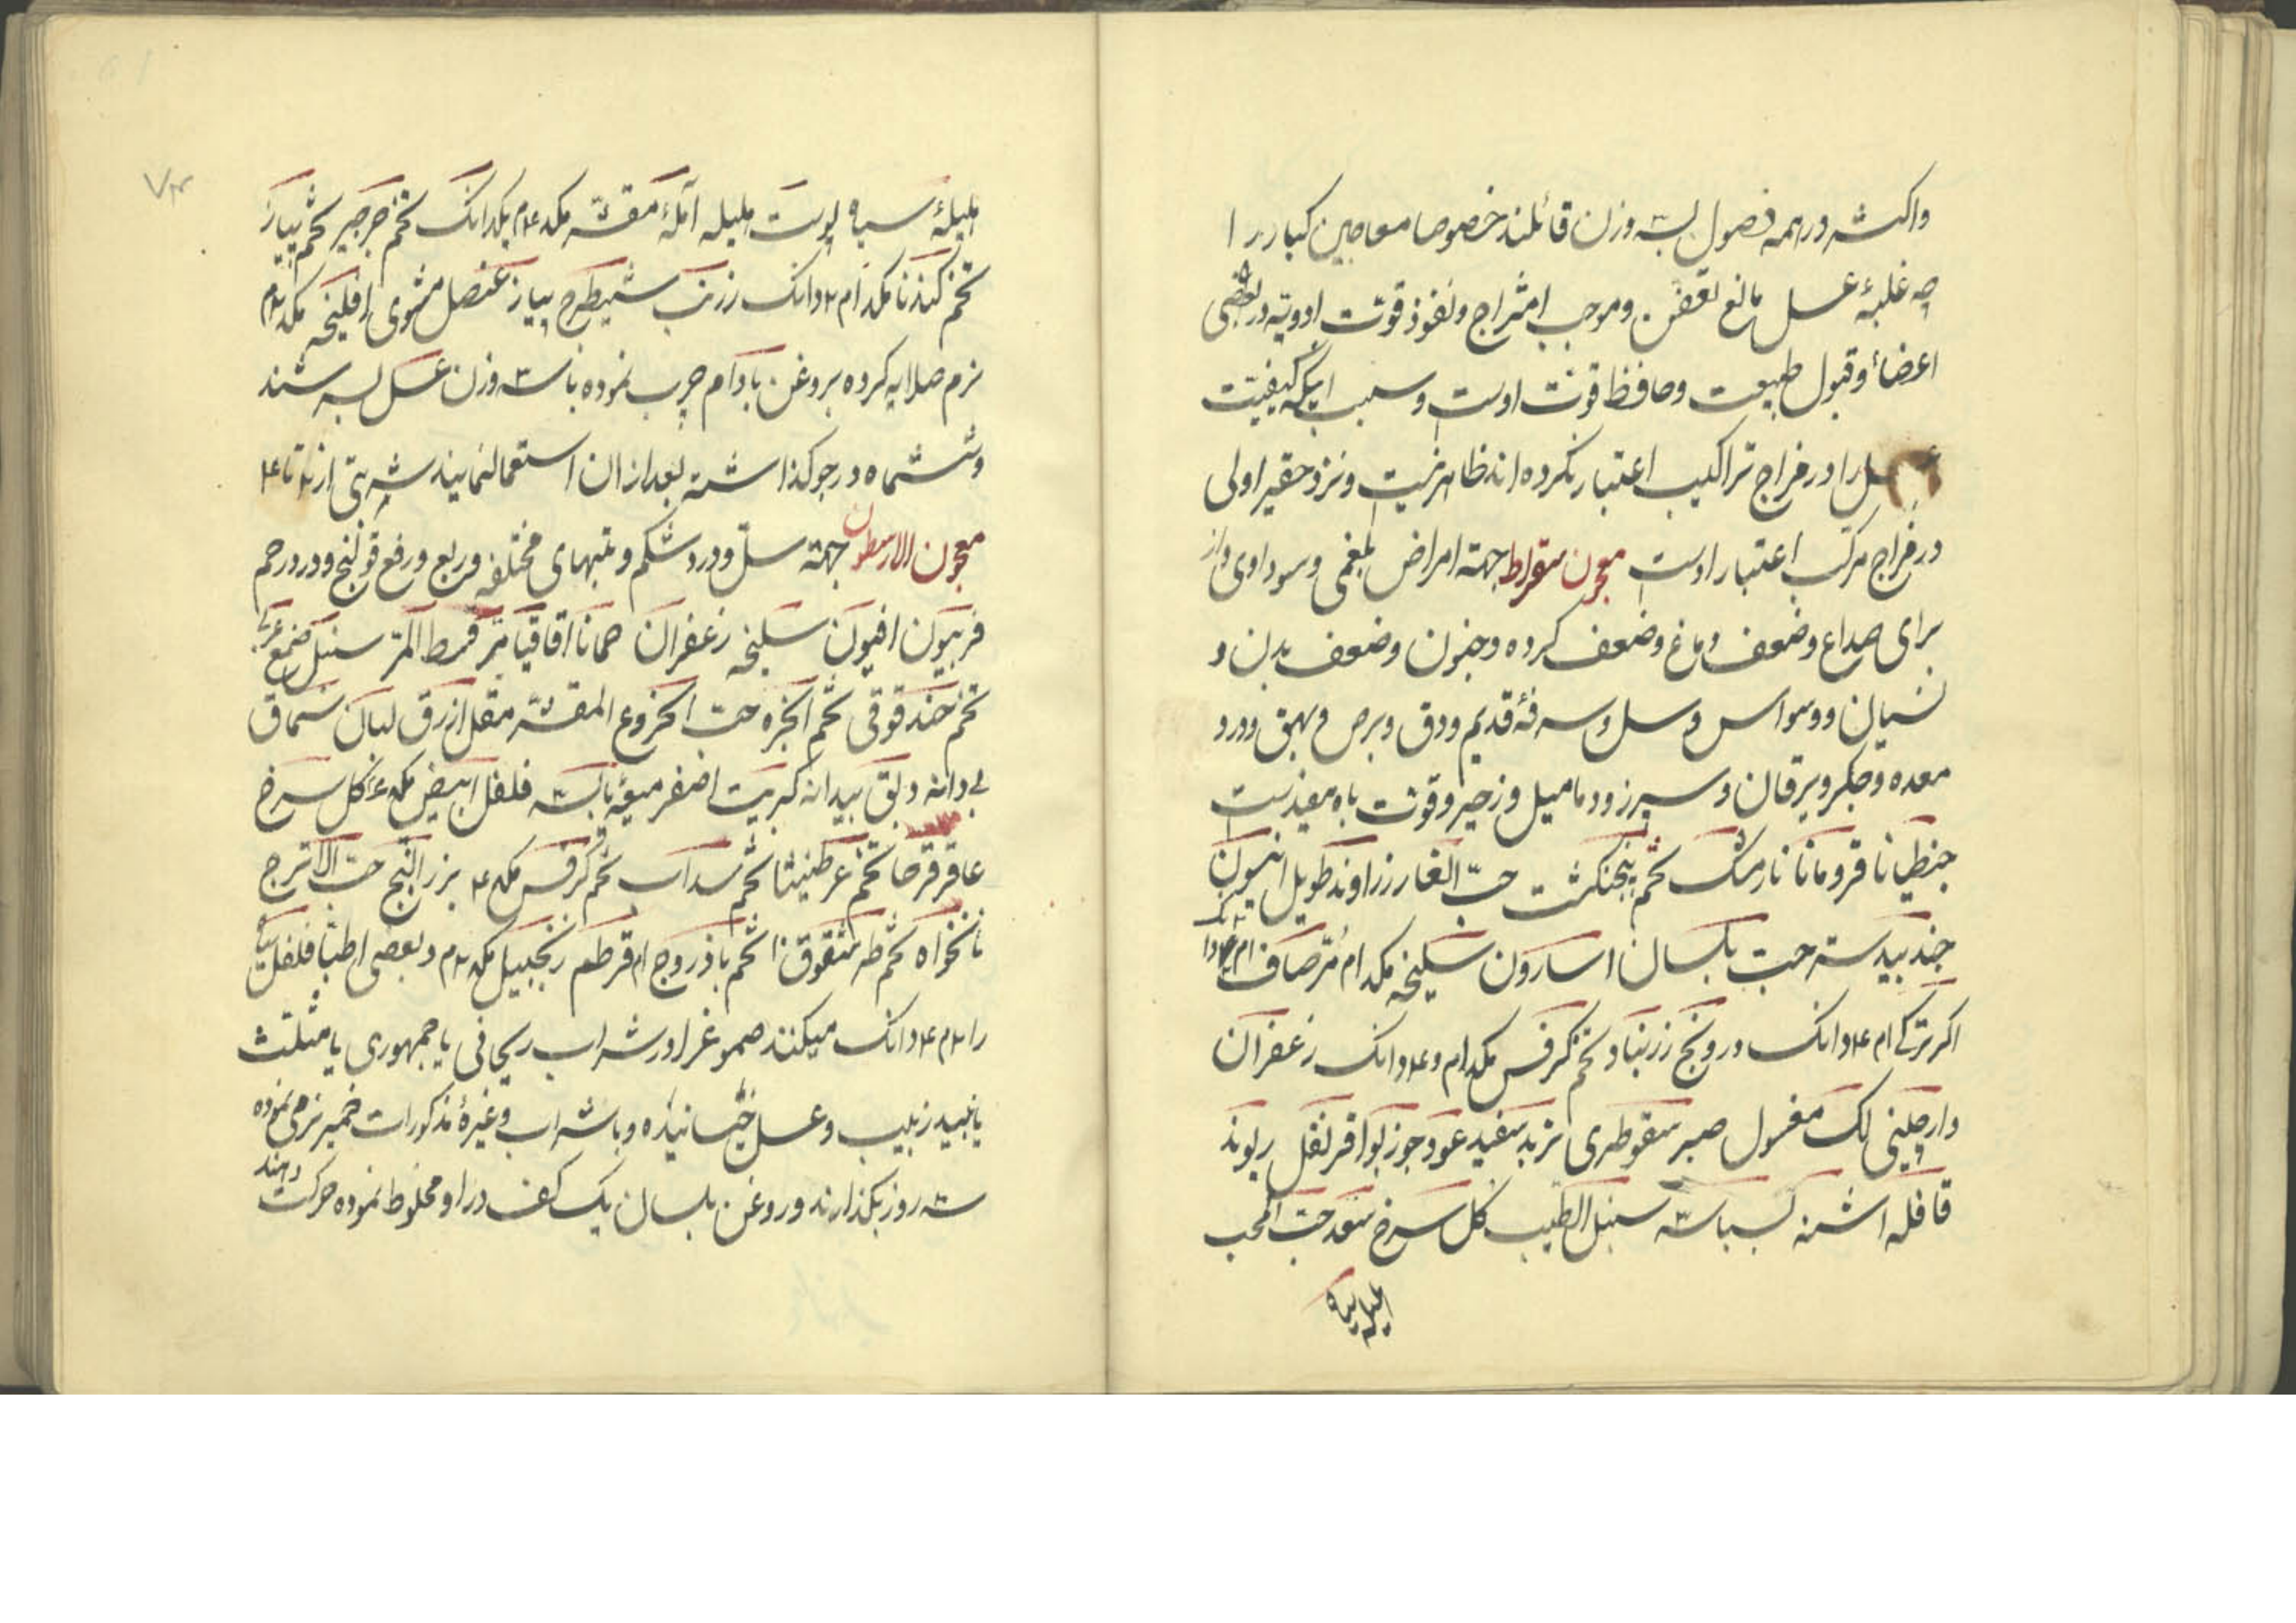 واکثر در همه فصول بسه وزن قائلند خصوصا معاجین کبار را
چه غلبهٔ عسل مانع تعفن و موجب امتزاج و نفوذ قوت ادویه در بعضی
اعضاء و قبول طبیعت و حافظ قوت اوست و سبب اینکه کیفیت
عسل را در مزاج تراکیب اعتبار نکرده اند ظاهر نیست و نزد حقیر اولی
در مزاج مرکب اعتبار اوست معجون سقراط جهة امراض بلغمی و سوداوی و از
برای صداع و ضعف دماغ و ضعف کرده و جنون و ضعف بدن و
نسیان و وسواس و سل و سرفهٔ قدیم و دق و برص و بهق و درد
معده و جکر و یرقان و سپرز و دمامیل و زحیر و قوت باه مفیدست
جنطیانا قردمانا نارمشک تخم پنجنکشت حبّ الغار زراوند طویل انیسون
جندبیدستر حب بلسان اسارون سلیخه مکد ام مرّ صاف
اکر ترکی ام ۴دانک درونج زرنباد تخم کرفس مکد ام و ۴دانک زعفران
دارچینی لک مغسول صبر سقوطری تربد سفید عود جوزبوا قرنفل ریوند
قاقله اشنه بسباسه سنبل الطیب کل سرخ سعد حب المحلب
هلیله سیاه
هلیلهٔ سیاه پوست هلیله آملهٔ مقشر مکد ۴م یکدانک تخم جرجیر تخم پیاز
تخم کندنا مکد ام ۲دانک زرنب شیطرج پیاز عنصل مشوی افلنجه مکد ۲م
نرم صلایه کرده بروغن بادام چرب نموده با سه وزن عسل بسرشند
و ششماه در جو کذاشته بعد از ان استعمال نمایند شربتی از ۲ تا ۴
معجون الارسطون جهة سلّ و درد شکم و تبهای مختلفه و ربع و رفع قولنج و درد رحم
فربیون افیون سلیخه زعفران حماما اقاقیا مرّ قسط المرّ سنبل صمغ عربی
تخم حندقوقی تخم انجره حب الخروع المقشر مقل ازرق لبان سماق
بی دانه دبق بیدانه کبریت اصفر میعهٔ یابسه فلفل ابیض مکد ۴ کل سرخ
عاقرقرحا تخم عرطنیثا تخم سداب تخم کرفس مکد ۴ بزر البنج حب الاترج
نانخواه تخم طرشقوق تخم باذروج ام قرطم زنجبیل مکد ۲م و بعضی اطبا فلفل سیاه
را ۲م ۴دانک میکنند صموغ را در شراب ریحانی یا جمهوری یا مثلث
یا نبید زبیب و عسل خیسانیده و باشراب و غیرهٔ مذکورات خمیر نرمی نموده
سه روز بکذارند و روغن بلسان یک کف در او مخلوط نموده حرکت دهند